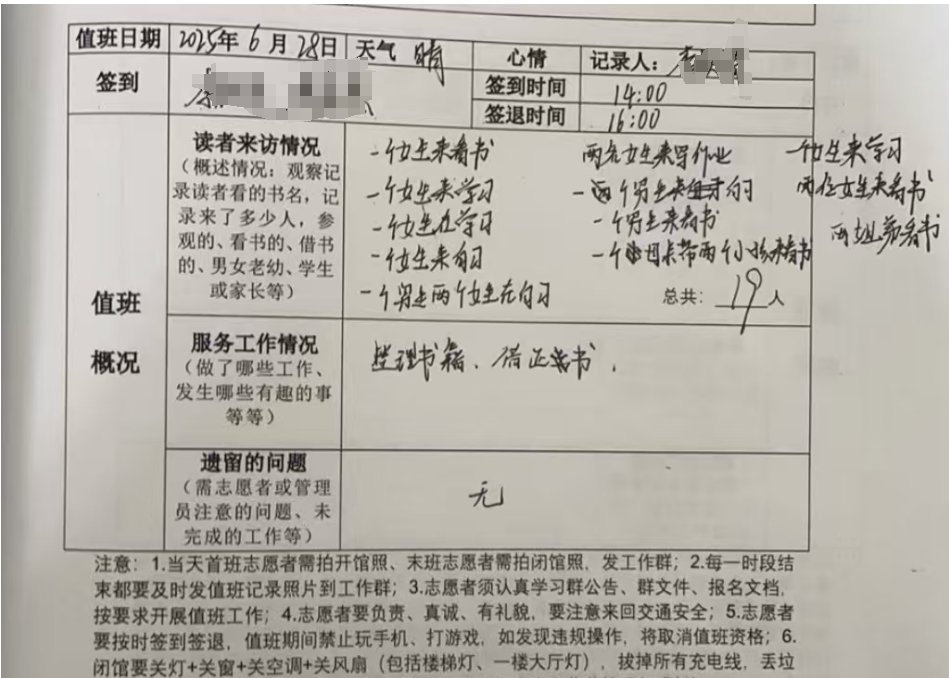 值班日期 2025年 6月 28日 天气 晴 心情 记录人：
签到 签到时间 14:00
签退时间 16:00
值班
概况
读者来访情况
（概述情况：观察记
录读者看的书名，记
录来了多少人，参
观的、看书的、借书
的、男女老幼、学生
或家长等）
一个女生来看书 两名女生来写作业 一个女生来学习
一个女生来学习 个男生来自习 两位女生来看书
一个女生在学习 一个男生来看书 两姐弟看书
一个女生来自习 一个 带两个小孩来看书
一个男生两个女生在自习 总共：19人
服务工作情况
（做了哪些工作、
发生哪些有趣的事
等等）
整理书籍、 书.
遗留的问题
（需志愿者或管理
员注意的问题、未
完成的工作等）
无
注意：1.当天首班志愿者需拍开馆照、末班志愿者需拍闭馆照，发工作群；2.每一时段结
束都要及时发值班记录照片到工作群；3.志愿者须认真学习群公告、群文件、报名文档，
按要求开展值班工作；4.志愿者要负责、真诚、有礼貌，要注意来回交通安全；5.志愿者
要按时签到签退，值班期间禁止玩手机、打游戏，如发现违规操作，将取消值班资格；6.
闭馆要关灯+关窗+关空调+关风扇（包括楼梯灯、一楼大厅灯），拔掉所有充电线，丢垃